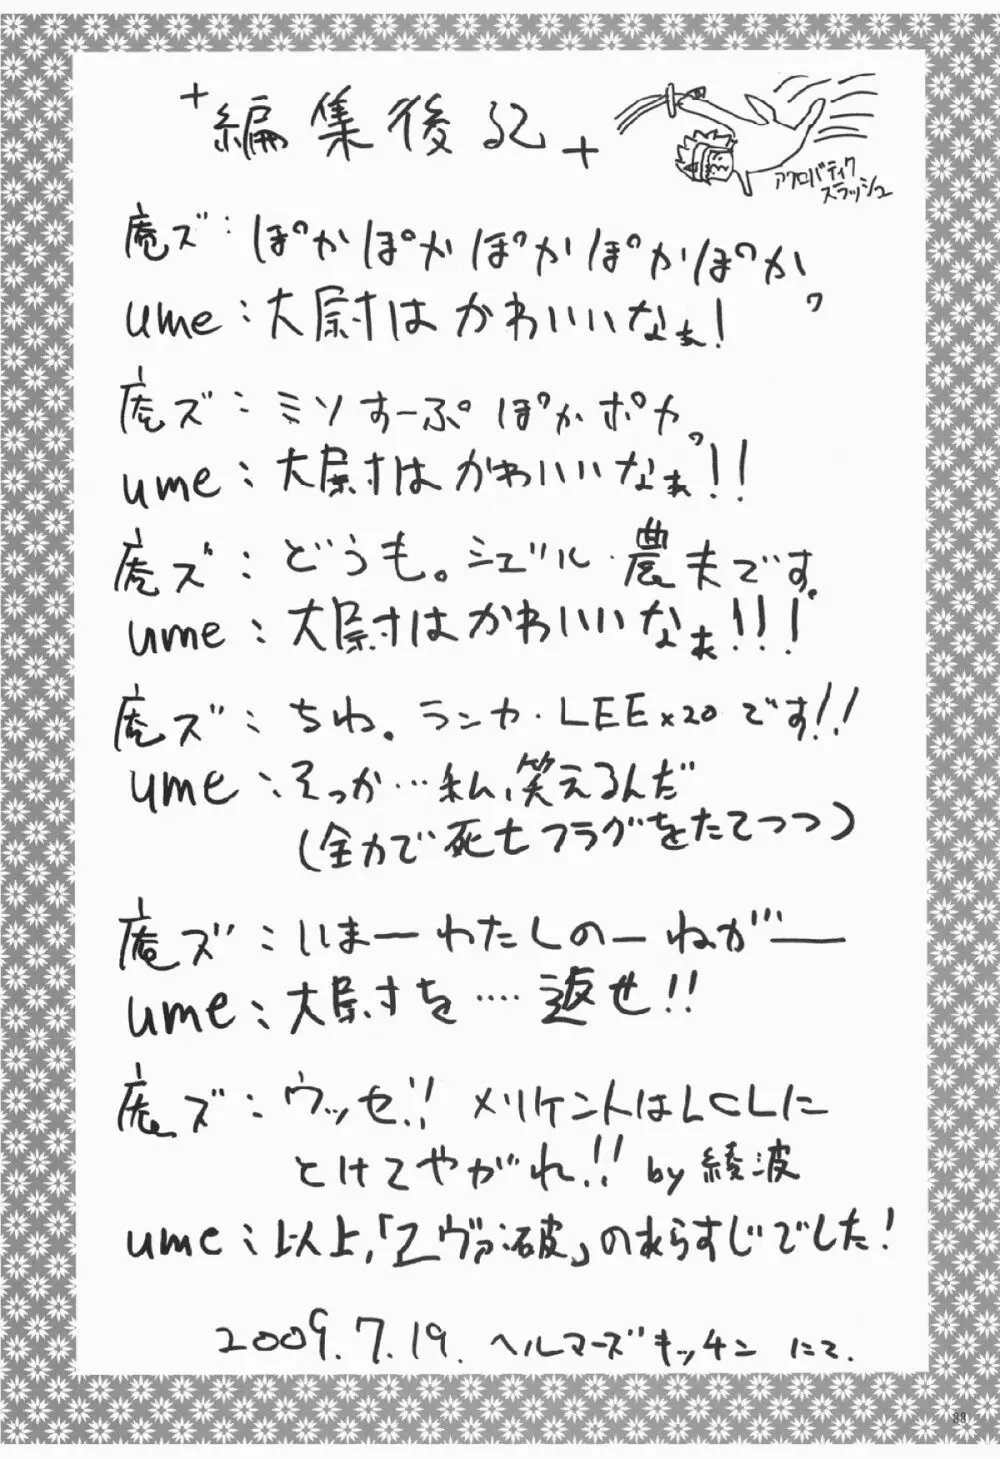 編集後記
アクロバティク
スラッシュ
庵ズ:ぽかぽかぽかぽかぽかっ
ume:大尉はかわいいなぁ!
庵ズ:ミソすーぷぽかポカっ
ume:大尉はかわいいなぁ!!
庵ズ:どうも。シェゾル・農夫です。
ume:大尉はかわいいなぁ!!!
庵ズ:ちね。ランカ・LEE×20です!!
ume:そっか…私、笑えるんだ
(全力で死亡フラグをたてつつ)
庵ズ:いまーわたしのーねがー
ume:大尉を‥‥返せ!!
庵ズ:ウッセ!! メリケントはLCLに
とけてやがれ!! by綾波
ume:以上、「ヱヴァ:破」のあらすじでした!
2009.7.19. ヘルマーズキッチン にて.
88